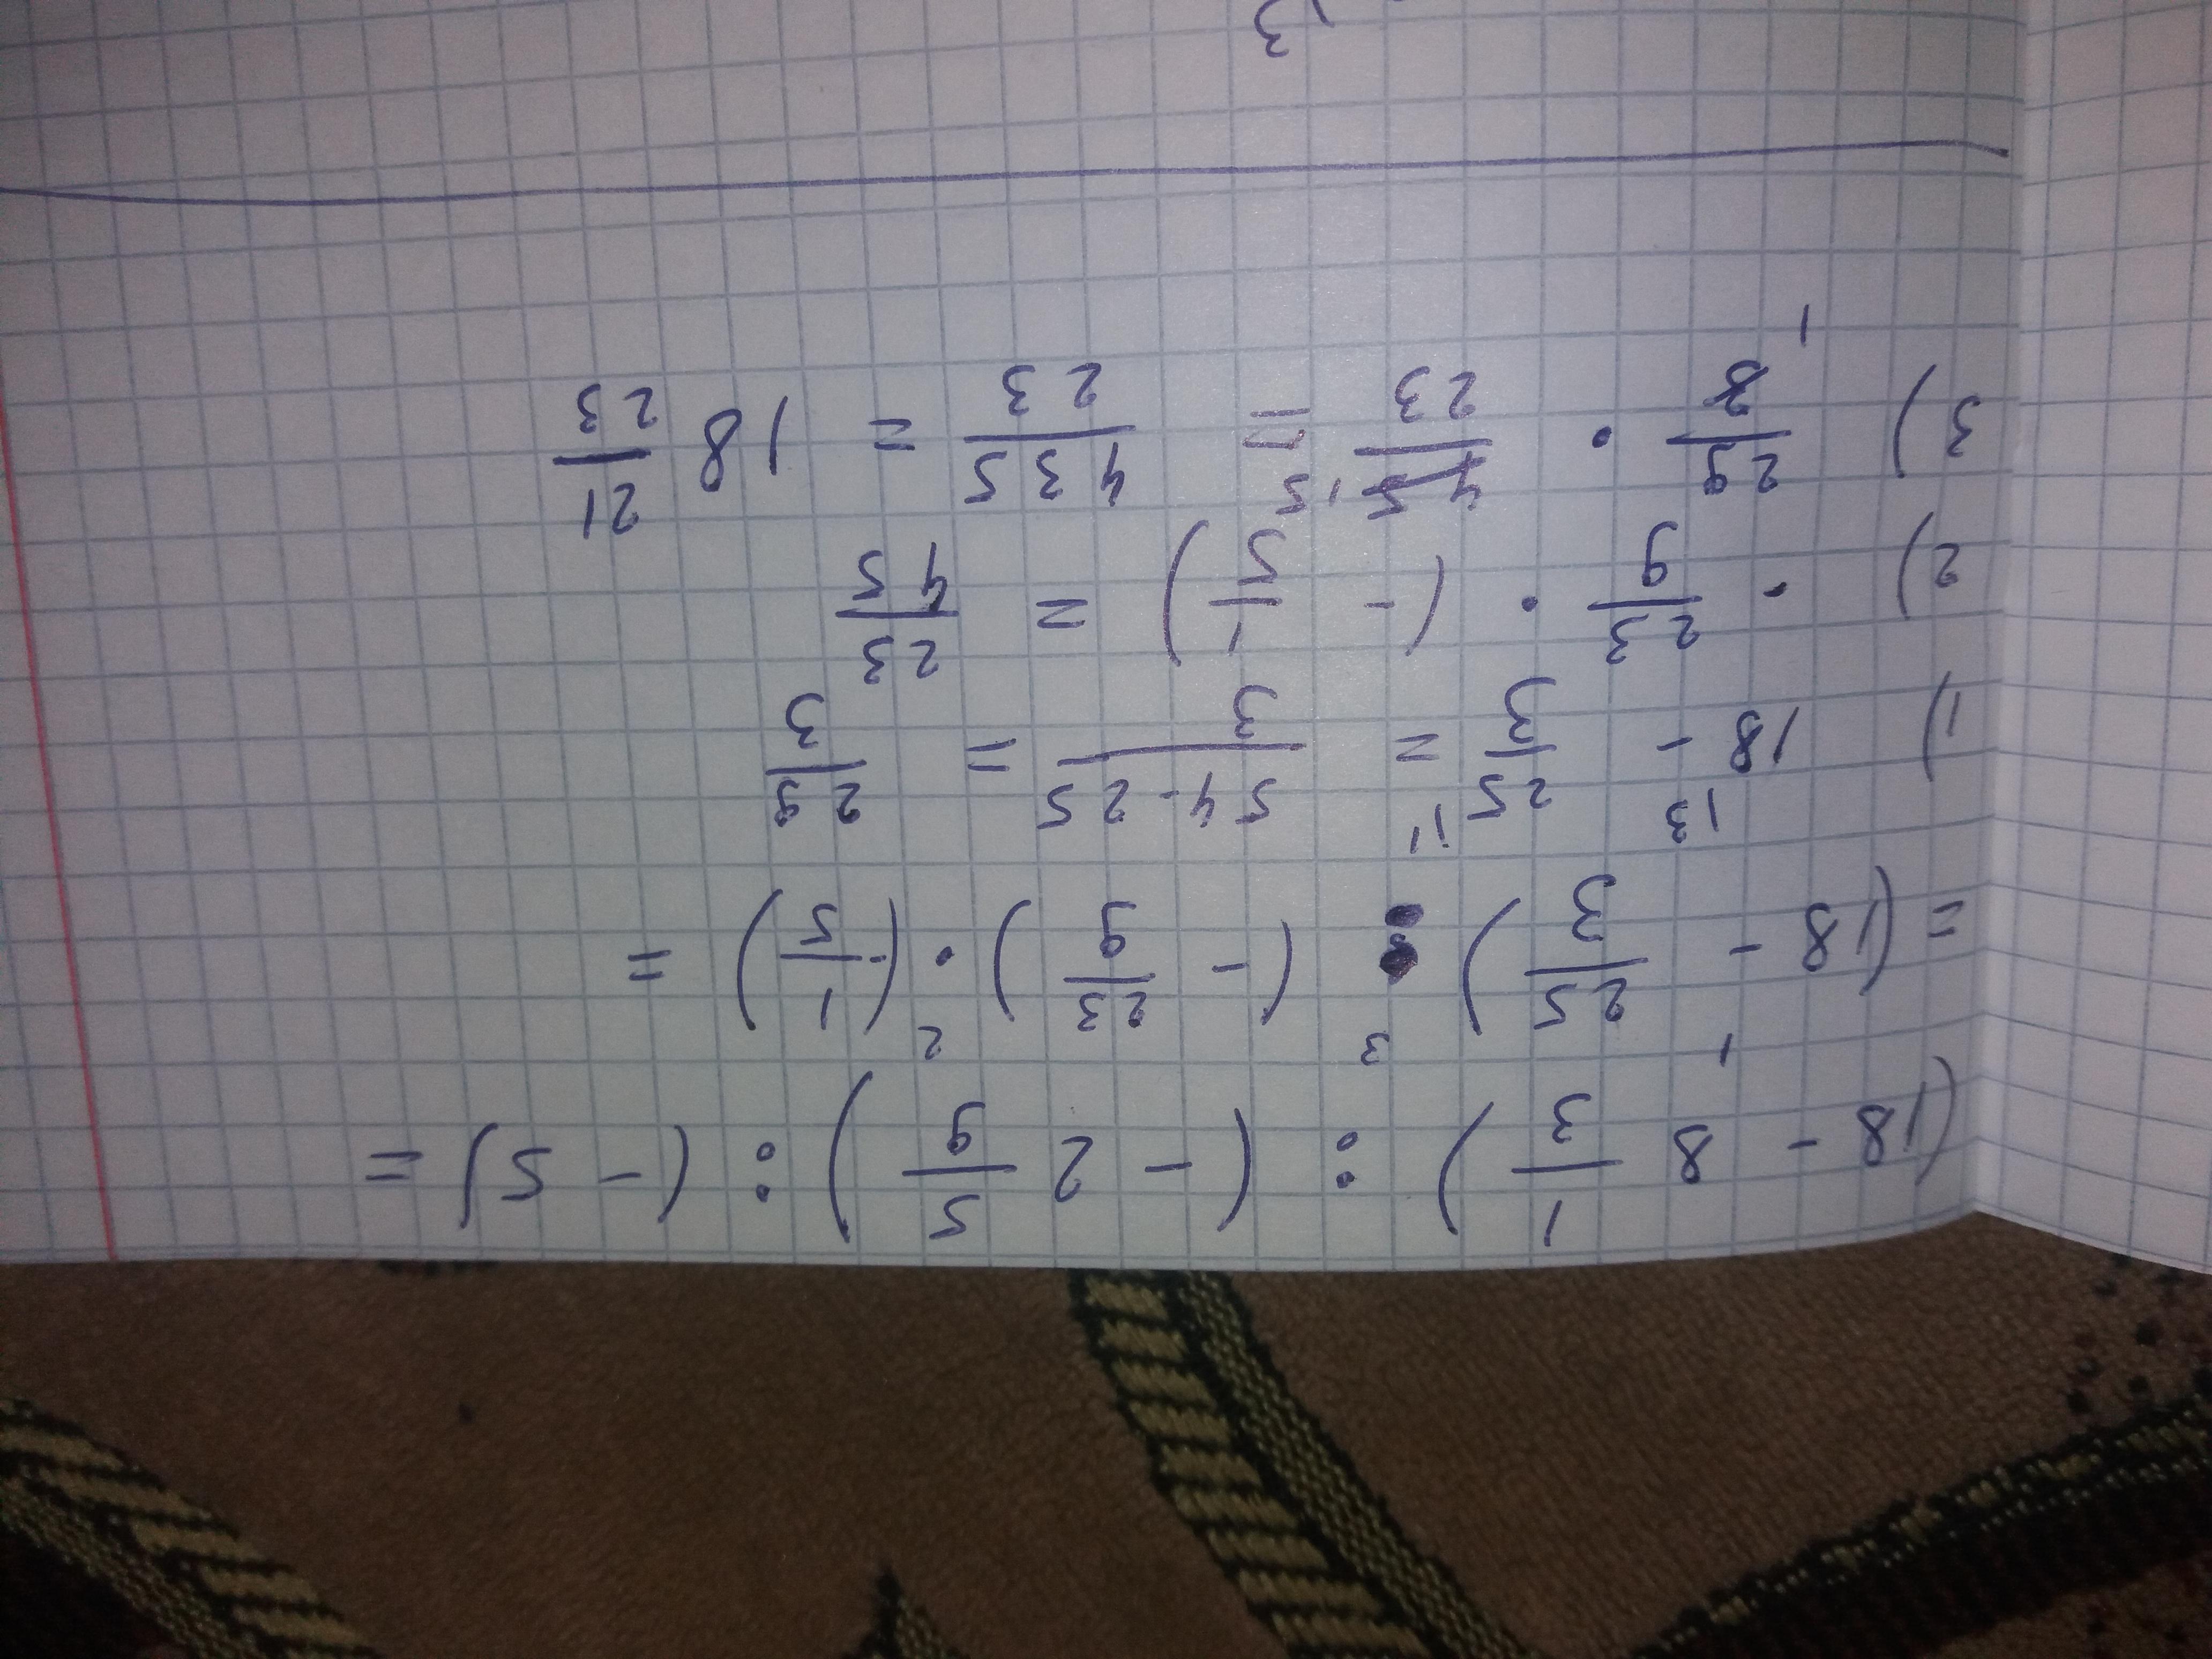 (18 - 8 1/3) : (- 2 5/9) : (- 5) =
1 3 2
= (18 - 25/3) : (- 23/9) · (- 1/5) =
1) 18 - 25/3 = 54-25/3 = 29/3
2) · 23/9 · (- 1/5) = 23/45
3) 29/3 · 45/23 = 435/23 = 18 21/23
3